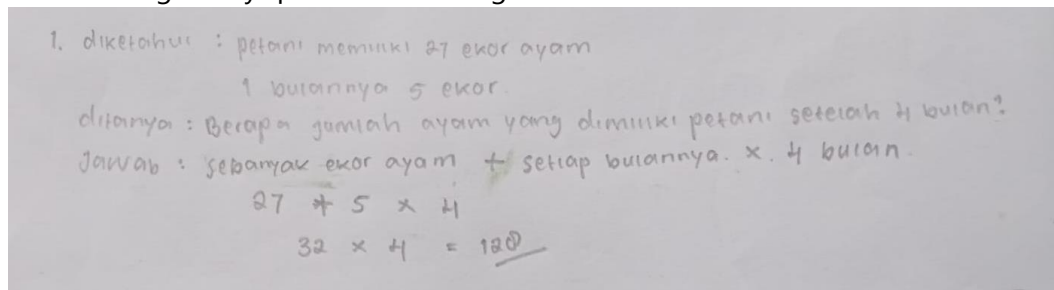 1. diketahui : petani memiliki 27 ekor ayam
1 bulannya 5 ekor.
ditanya : Berapa jumlah ayam yang dimiliki petani setelah 4 bulan?
Jawab : sebanyak ekor ayam + setiap bulannya. x. 4 bulan.
27 + 5 x 4
32 x 4 = 128